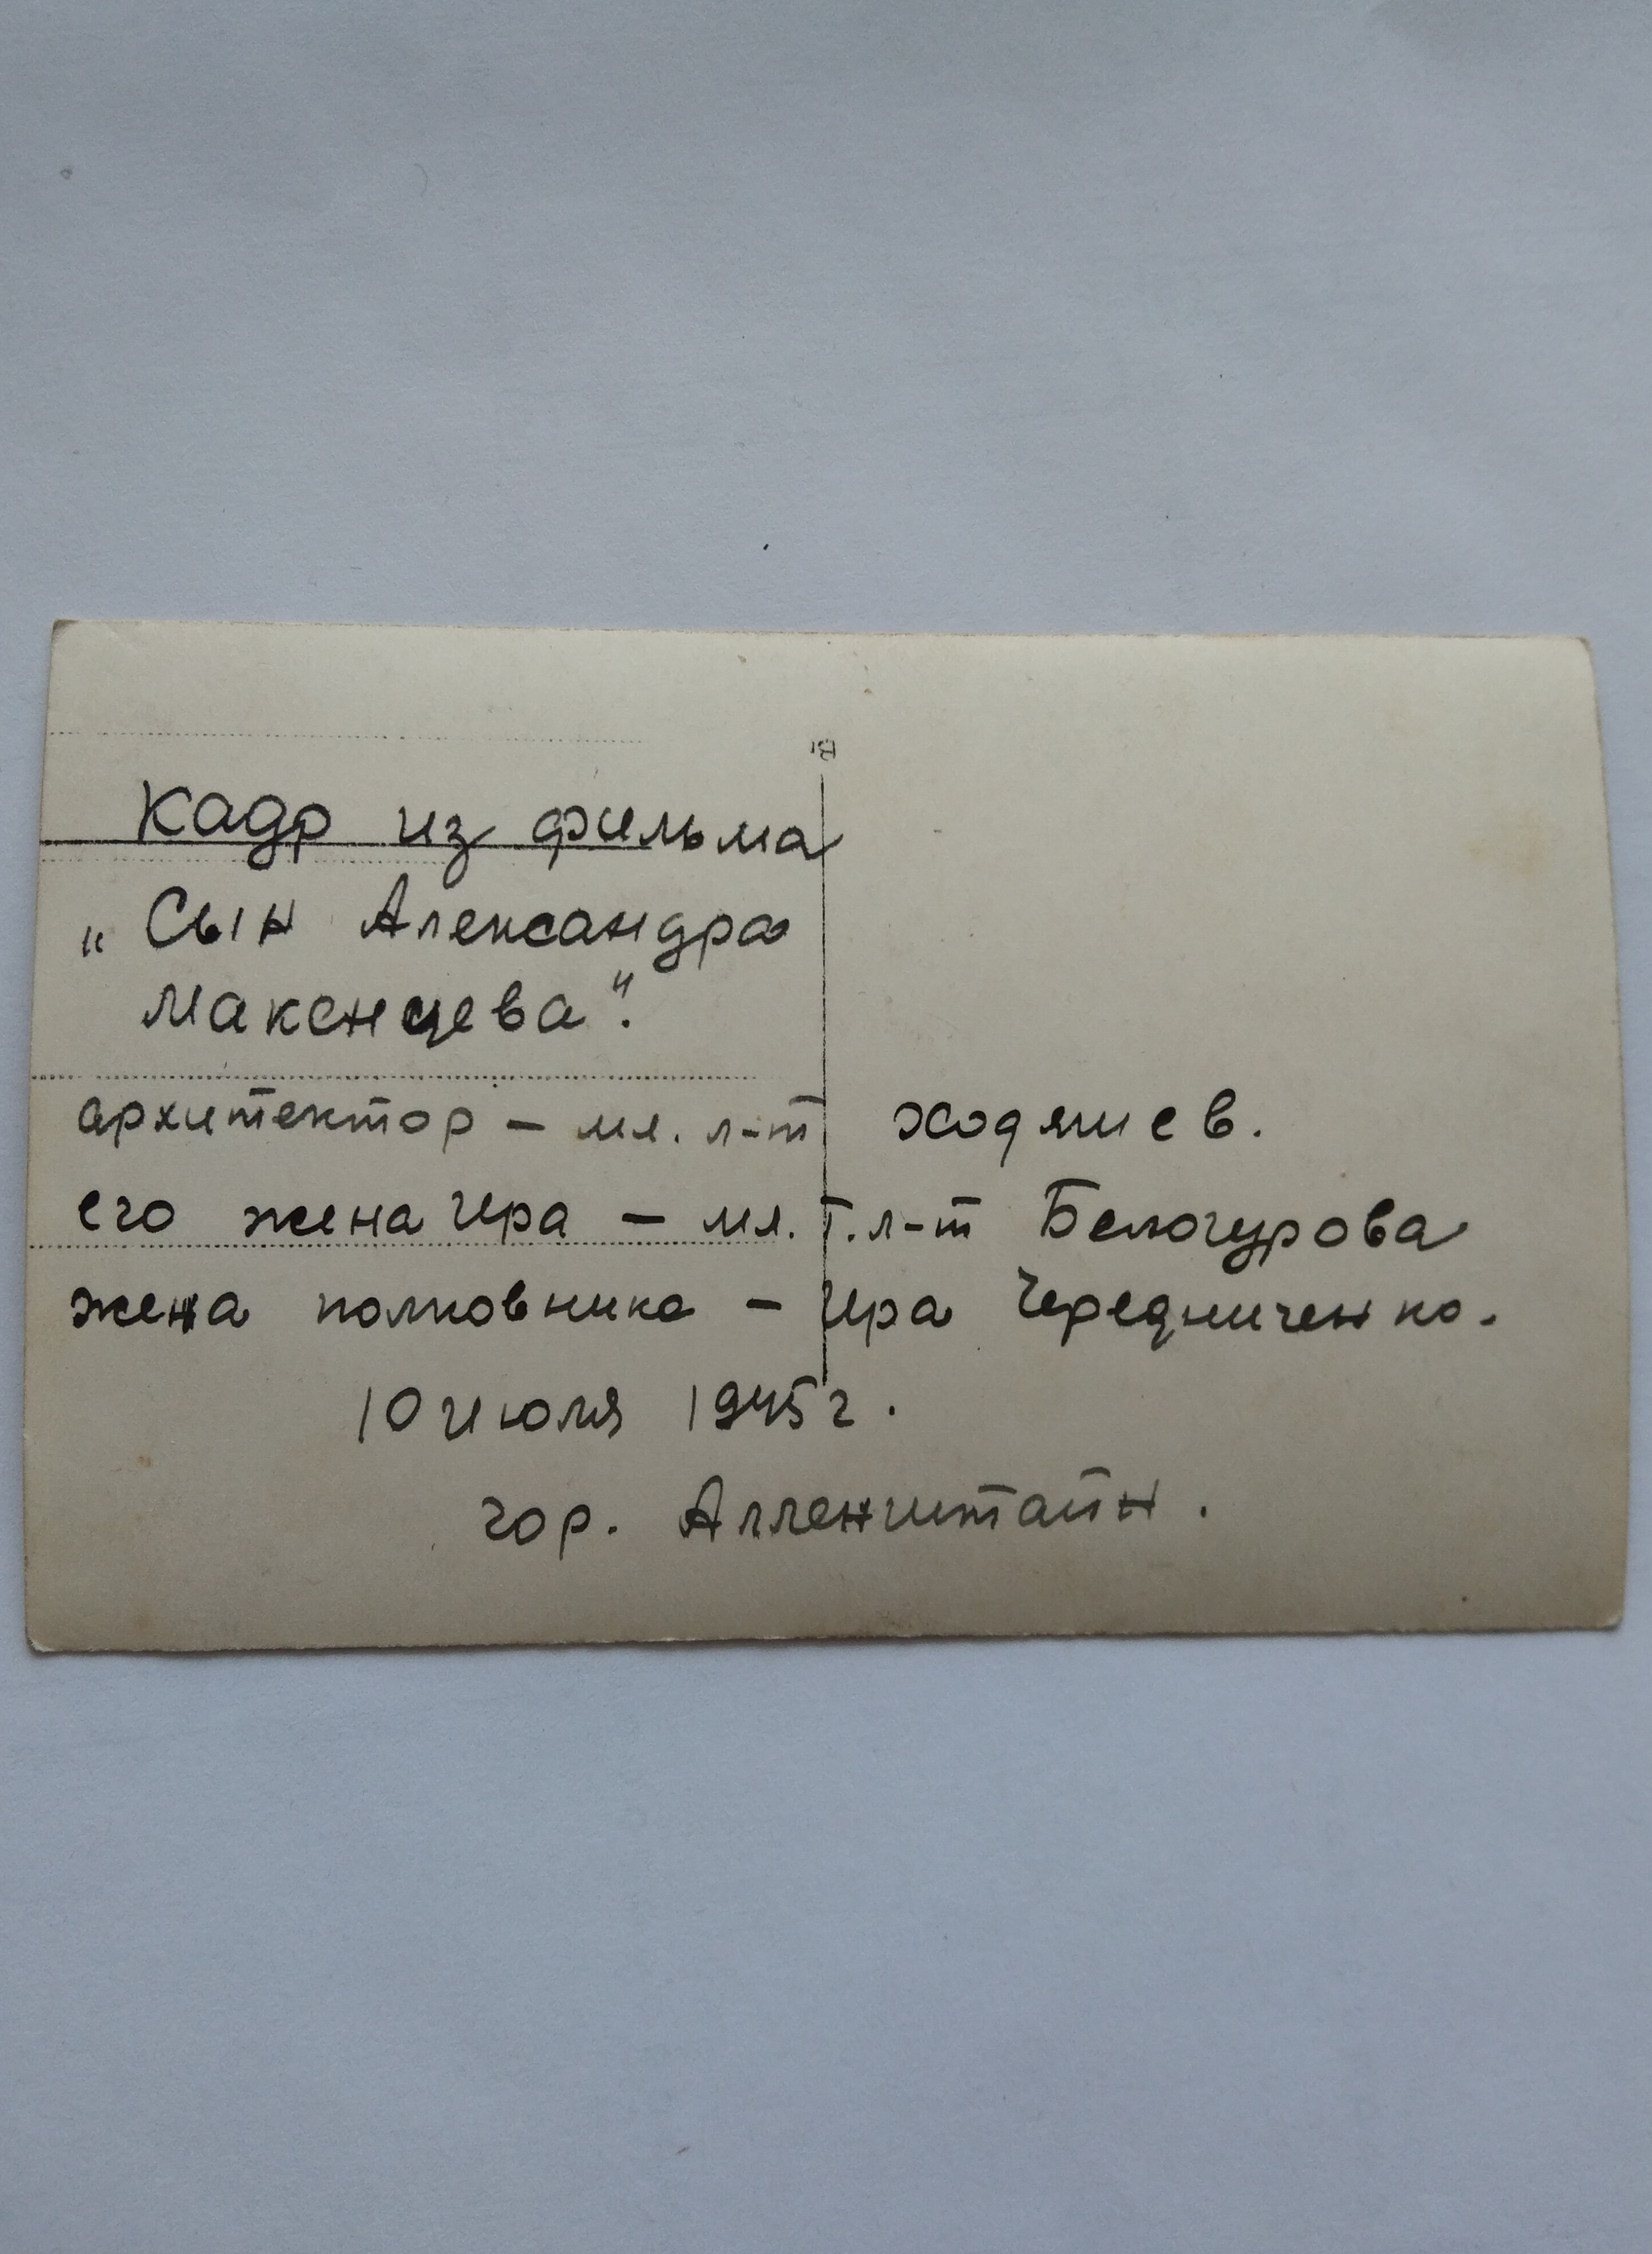 Кадр из фильма
„Сын Александра
Максенцева".
архитектор – мл. л-т Ходяшев.
его жена Ира – мл. т. л-т Белогурова
жена полковника – Ира Чередниченко.
10 июля 1945 г.
гор. Алленштайн.